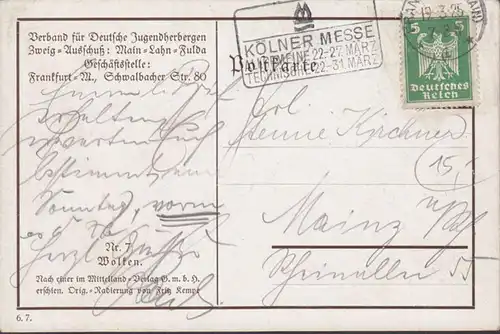 Verband für Deutsche Jugendherbergen
Zweig-Ausschuß: Main-Lahn-Fulda
Geschäftsstelle:
Frankfurt-M., Schwalbacher Str. 80
KÖLNER MESSE
ALLGEMEINE 22-27 MÄRZ
TECHNISCHE 22-31 MÄRZ
Postkarte
5 5
Deutsches
Reich
erwarten Euch
bestimmt am
Sonntag, vorm
Kirchner
15,-
Mainz a/Rh
Rheinallee 55
Nr. 7
Wolken.
Nach einer im Mittelland-Verlag G. m. b. H.
erschien. Orig.-Radierung von Fritz Kempe
6. 7.